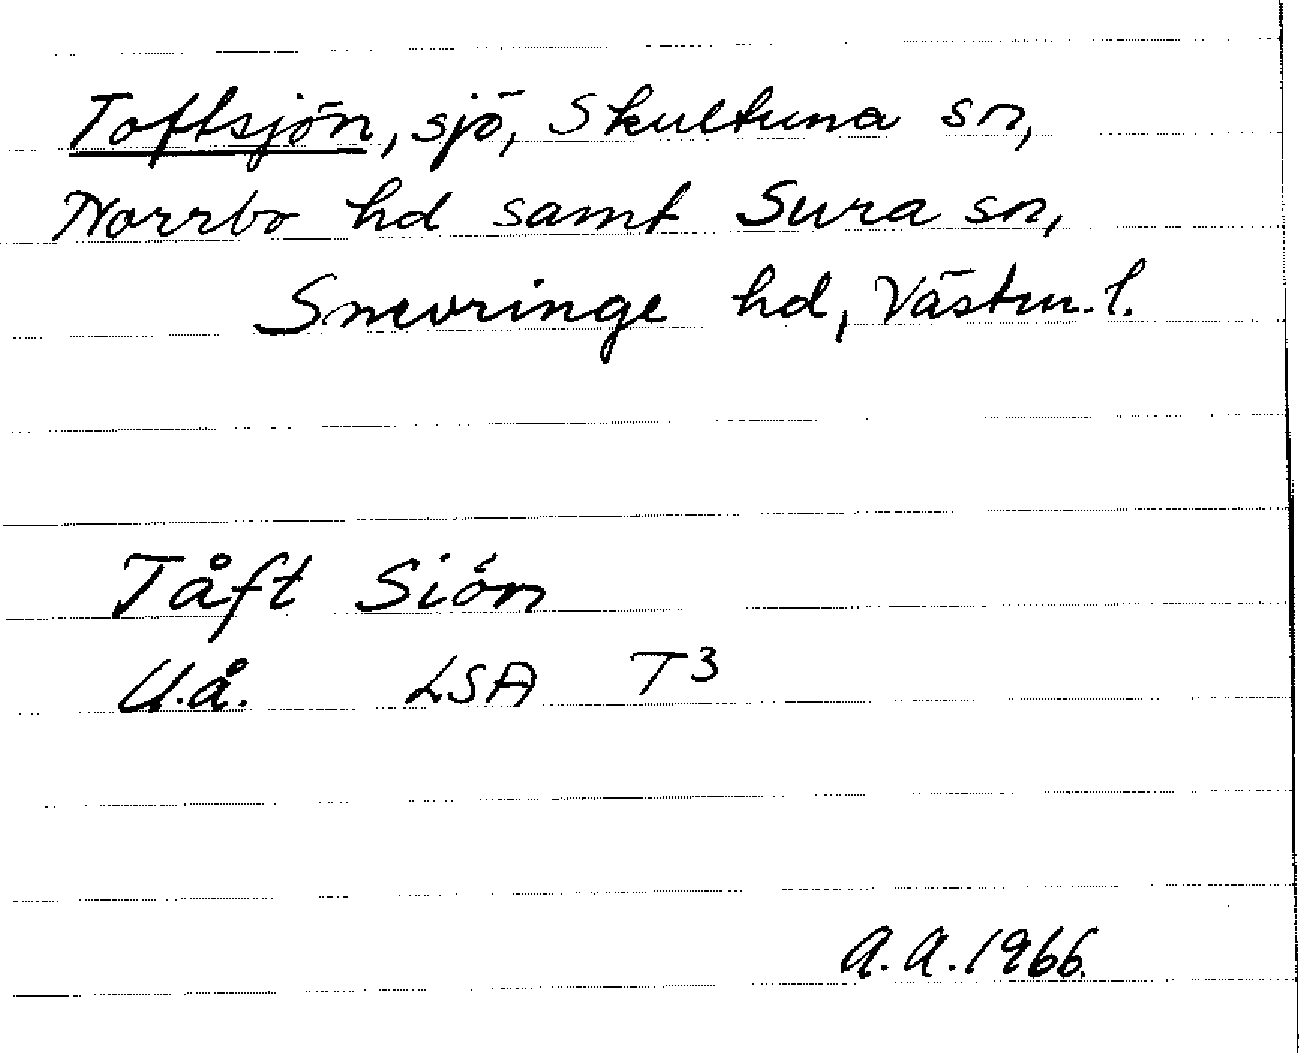 Toftsjön, sjö, Skultuna sn,
Norrbo hd samt Sura sn,
Snevringe hd, Västm. l.
Tåft Siön
U.å. LSA T3
A.A. 1966.